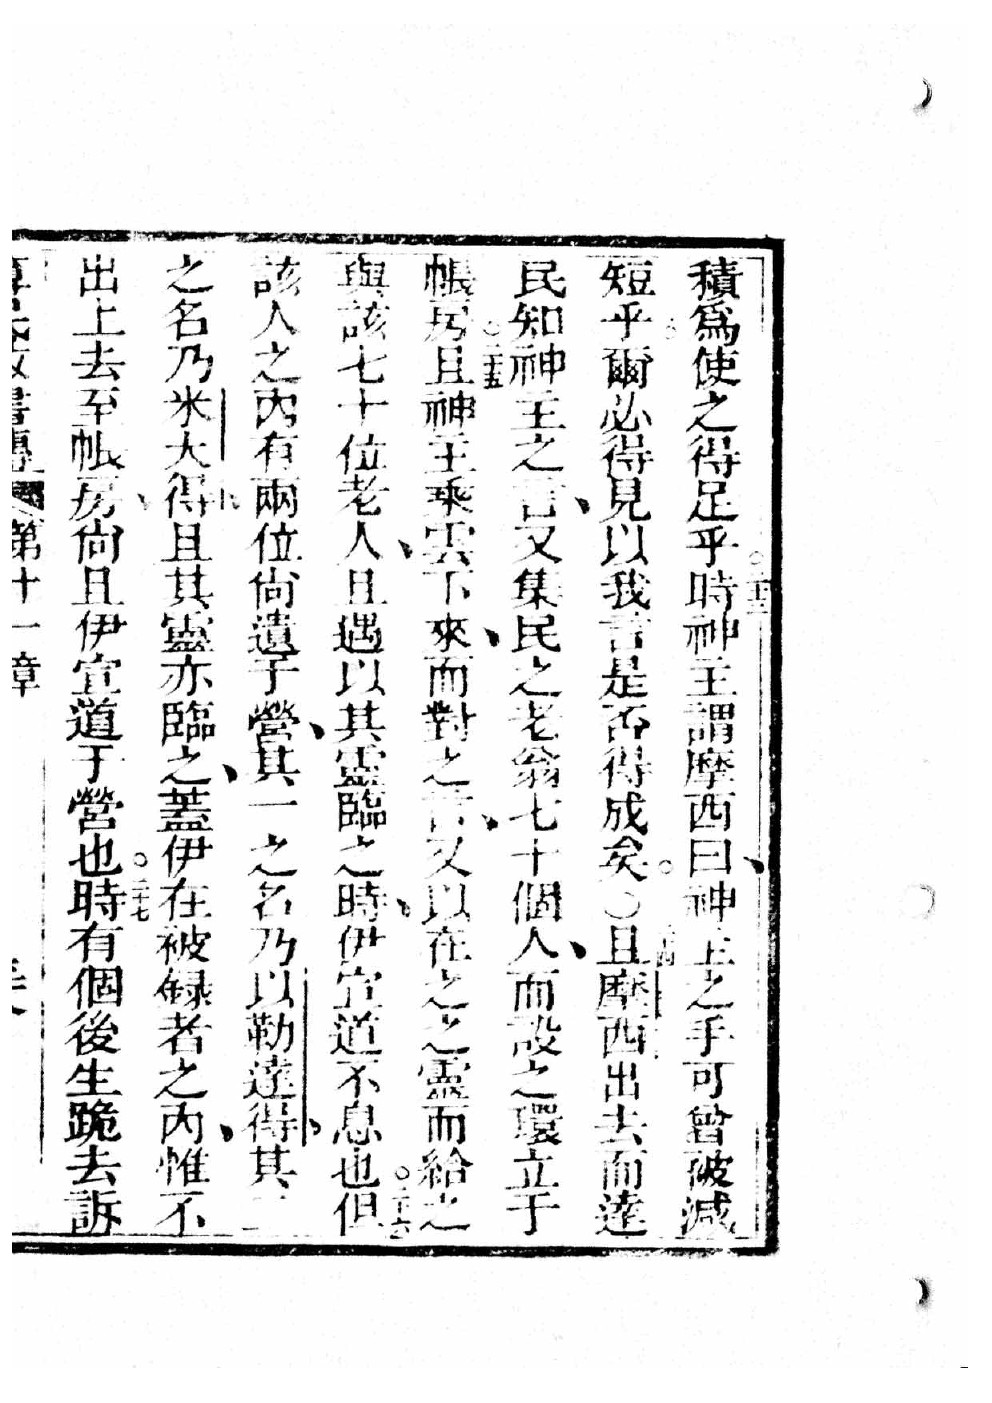 積爲使之得足乎○二十三時神主謂摩西曰神主之手可曾被減
短乎爾必得見以我言是否得成矣○○二十四且摩西出去而達
民知神主之言又集民之老翁七十個人而設之環立于
帳房○二十五且神主乘雲下來而對之言又以在之之靈而給之
與該七十位老人且遇以其靈臨之時伊宣道不息也○二十六但
該人之內有兩位尙遺于營其一之名乃以勒達得其二
之名乃米大得且其靈亦臨之蓋伊在被錄者之內惟不
出上去至帳房尙且伊宣道于營也○二十七時有個後生跪去訴
書傳 第十一章